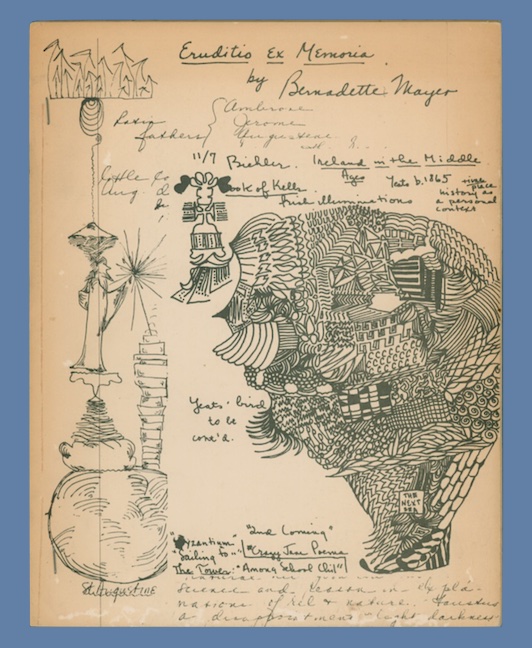 Eruditio Ex Memoria
by Bernadette Mayer
Ambrose
Jerome
Augustine
fathers
11/7 Biehler. Ireland in the Middle
Ages
Yeats b. 1865
place
history as
a personal
context
Book of Kells.
Irish illuminations
Aug.
Yeats' bird
to be
cone'd.
THE
NEXT
"2nd Coming"
"Byzantium"
"Sailing to-" "Crazy Jane Poems
The Tower: "Among School Chil"
St. Augustine
science and reason in expla-
nations of rel + nature. Faustus
a disappointment - light darkness